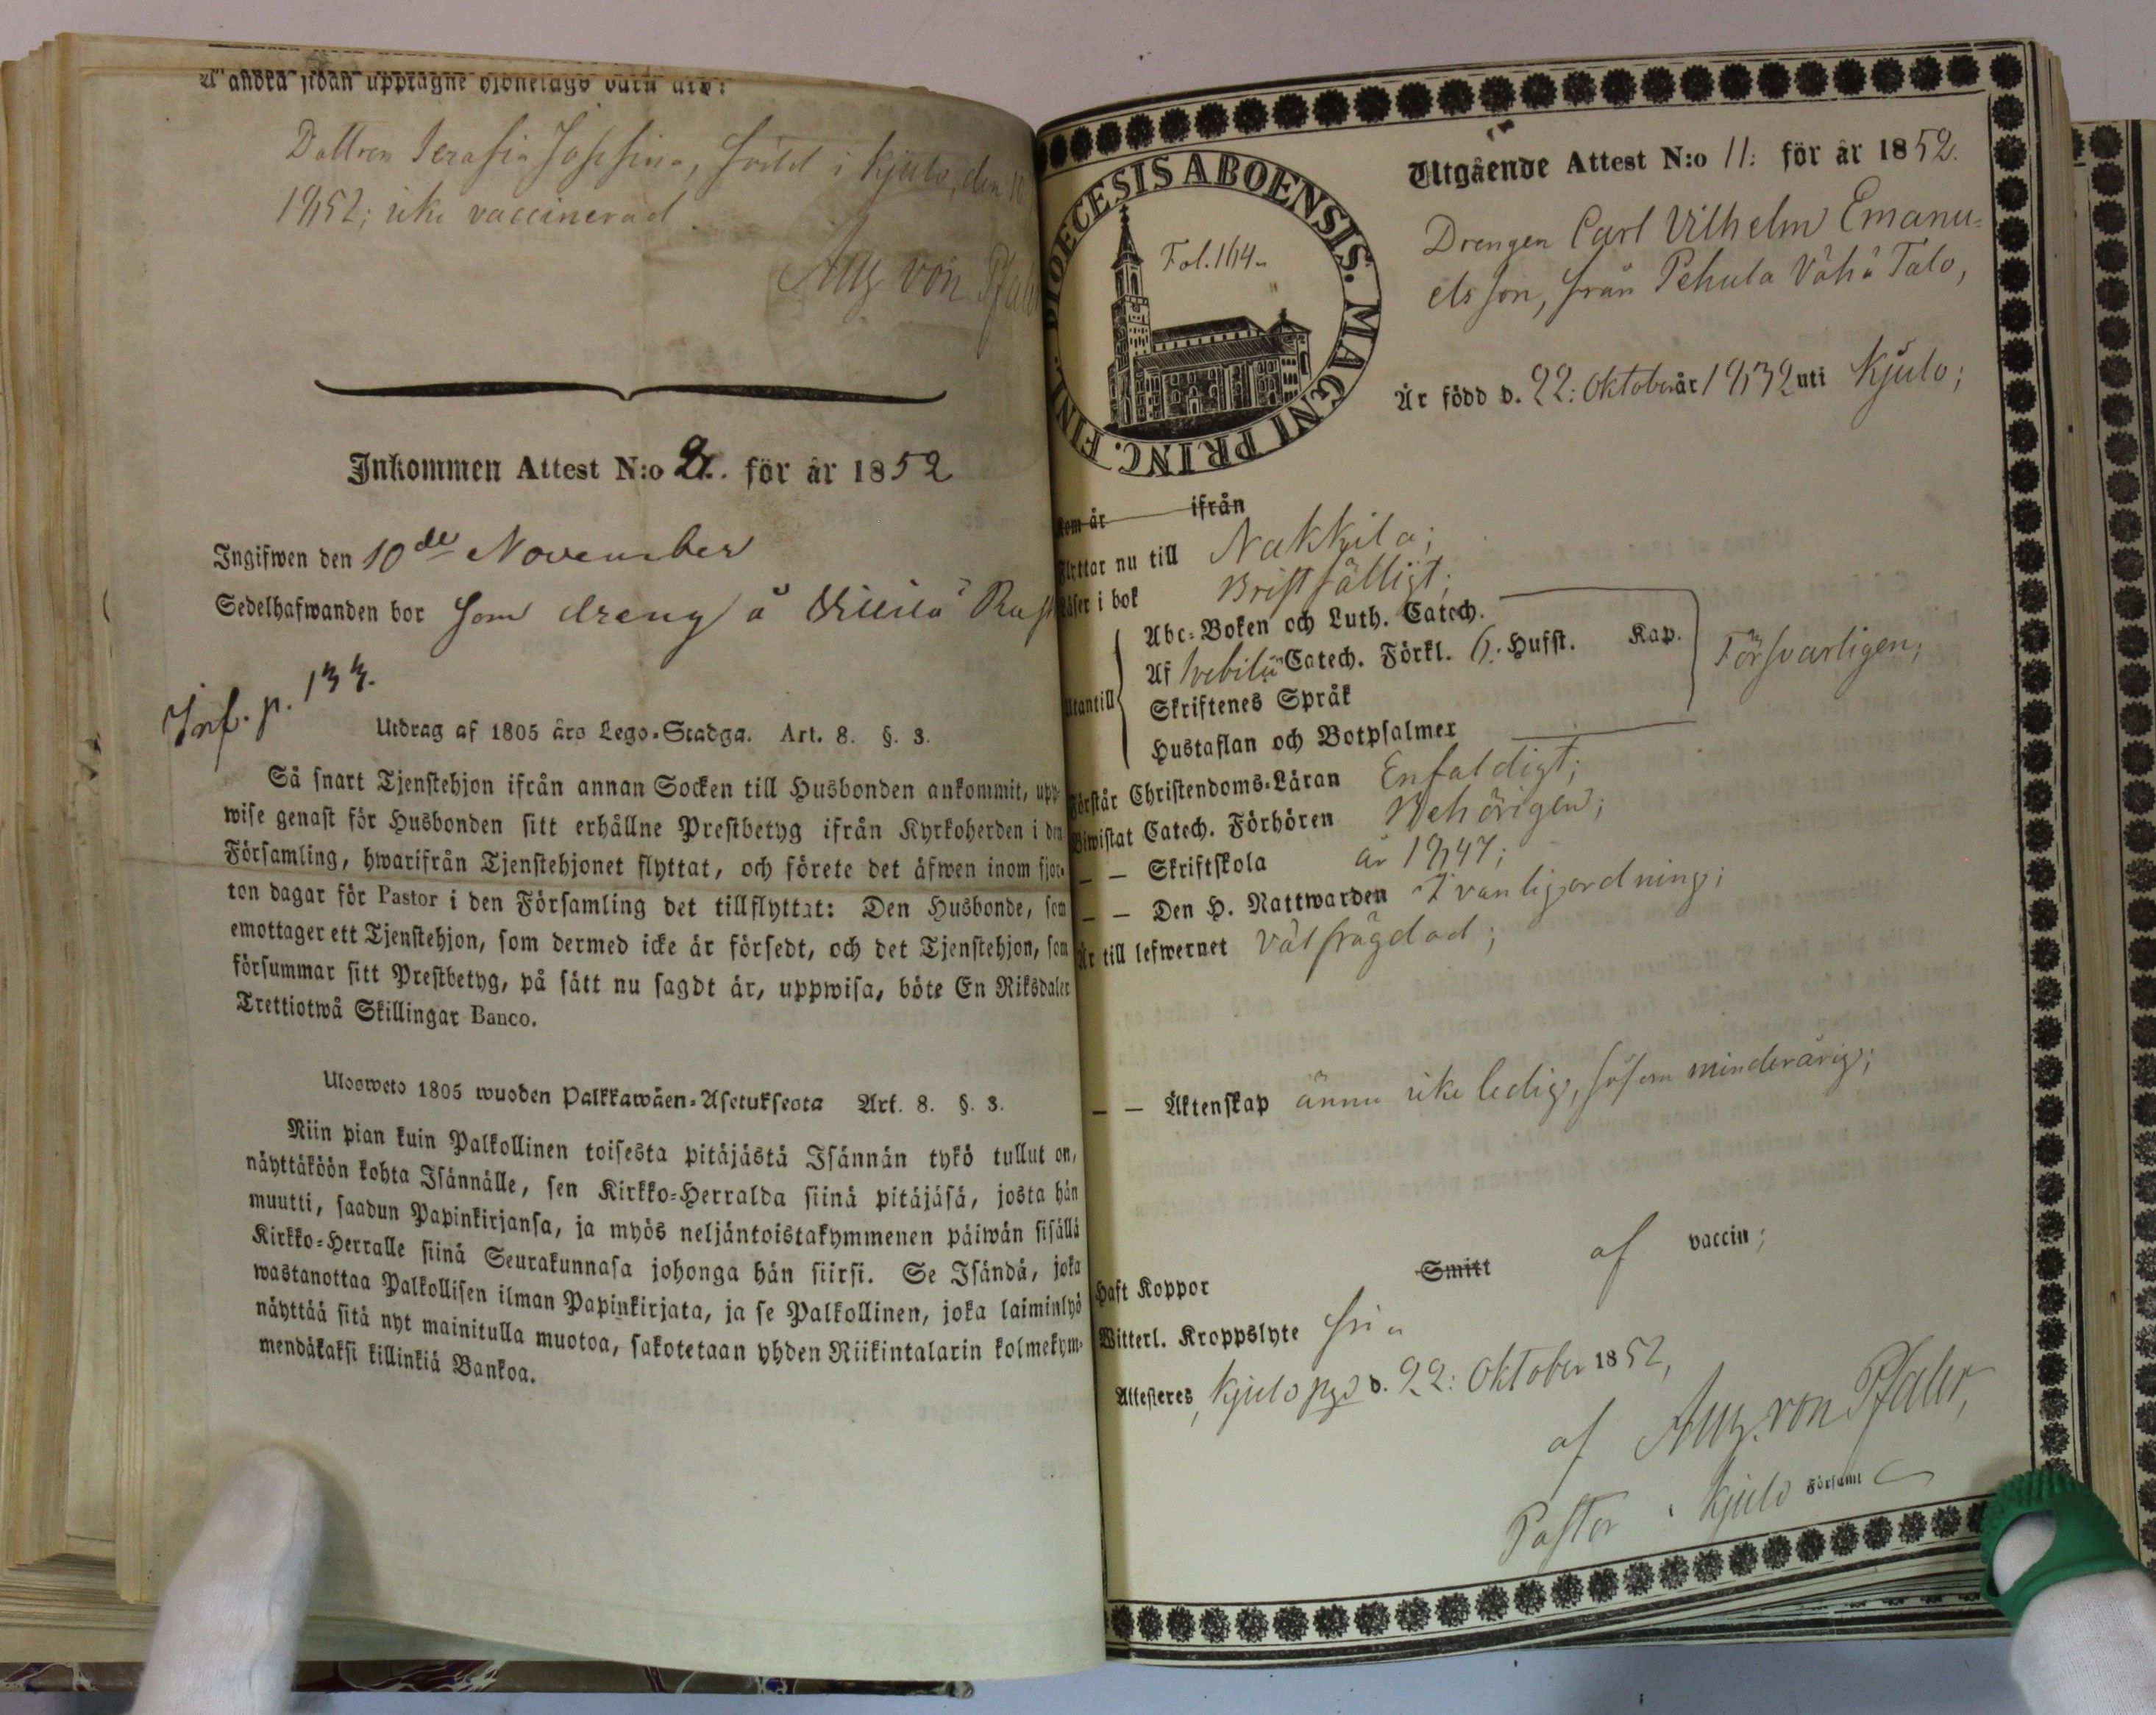 Å andra sidan upptagne hjonelags barn äro:
Dottren Serafia Josefina, född i Kjulo, den 10
1852; icke vaccinerad
Aug von Pfaler
Inkommen Attest N:o 2. för år 1852
Ingifwen den 10de November
Sedelhafwanden bor som dreng å
Inf. p. 133.
Utdrag af 1805 års Lego-Stadga. Art. 8. §. 3.
Så snart Tjenstehjon ifrån annan Socken till Husbonden ankommit, upp-
wise genast för Husbonden sitt erhållne Prestbetyg ifrån Kyrkoherden i den
Församling, hwarifrån Tjenstehjonet flyttat, och förete det äfwen inom fjor-
ton dagar för Pastor i den Församling det tillflyttat: Den Husbonde, som
emottager ett Tjenstehjon, som dermed icke är försedt, och det Tjenstehjon, som
försummar sitt Prestbetyg, på sätt nu sagdt är, uppwisa, böte En Riksdaler
Trettiotwå Skillingar Banco.
Ulosweto 1805 wuoden Palkkawäen-Asetuksesta Art. 8. §. 3.
Niin pian kuin Palkollinen toisesta pitäjästä Isännän tykö tullut on,
näyttäköön kohta Isännälle, sen Kirkko-Herralda siinä pitäjäsä, josta hän
muutti, saadun Papinkirjansa, ja myös neljäntoistakymmenen päiwän sisällä
Kirkko-Herralle siinä Seurakunnasa johonga hän siirsi. Se Isändä, joka
wastanottaa Palkollisen ilman Papinkirjata, ja se Palkollinen, joka laiminlyö
näyttää sitä nyt mainitulla muotoa, sakotetaan yhden Riikintalarin kolmekym-
mendäkaksi killinkiä Bankoa.
DIOECESIS ABOENSIS. MAGNI PRINC. FINL.
Fol. 164.
Utgående Attest N:o 11: för år 1852.
Drengen Carl Vilhelm Emanu-
elsson, från Pehula Vähä Talo,
Är född d. 22: Oktober år 1832 uti Kjulo;
Kom år ifrån
Flyttar nu till Nakkila;
Läser i bok Bristfälligt;
Utantill
Abc-Boken och Luth. Catech.
Af Svebilii Catech. Förkl. 6: Hufst. Kap.
Skriftenes Språk
Hustaflan och Botpsalmer
Försvarligen;
Förstår Christendoms-Läran Enfaldigt;
Biwistat Catech. Förhören Behörigen;
— — Skriftskola år 1847;
— — Den H. Nattwarden I vanlig ordning;
Är till lefwernet Välfrägdad;
— — Äktenskap ännu icke ledig, såsom minderårig;
Haft Koppor Smitt af vaccin;
Witterl. Kroppslyte fri
Attesteres, Kjulo pgd d. 22: Oktober 1852,
af Aug. von Pfaler,
Pastor i Kjulo Församl